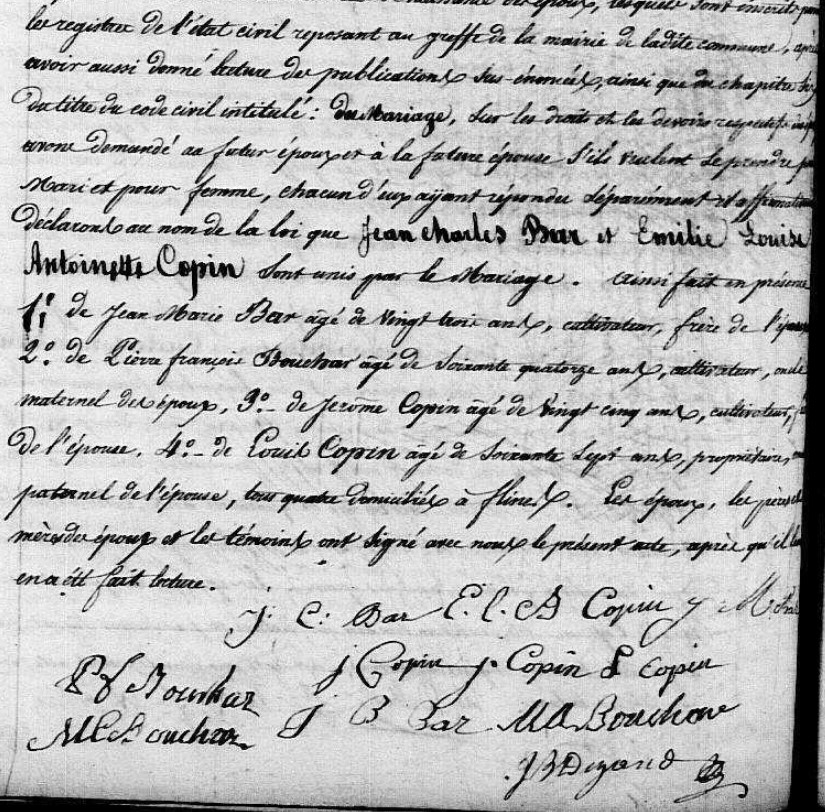 des époux, lesquels sont inscrits
les registres de l'état civil reposant au greffe de la mairie de ladite commune, après
avoir aussi donné lecture des publications sus-énoncées, ainsi que du chapitre
du titre du code civil intitulé: du Mariage, sur les droits et les devoirs respectifs
avons demandé au futur époux et à la future épouse s'ils veulent se prendre pour
Mari et pour femme, chacun d'eux ayant répondu séparément et affirmativement
déclarons au nom de la loi que Jean charles Bar et Emilie Louise
Antoinette Copin sont unis par le Mariage. ainsi fait en présence
1º de Jean Marie Bar âgé de vingt trois ans, cultivateur, frère de l'époux
2º de Pierre françois Bouchar âgé de soixante quatorze ans, cultivateur, oncle
maternel des époux, 3º de Jerôme Copin âgé de vingt cinq ans, cultivateur,
de l'épouse. 4º de Louis Copin âgé de soixante sept ans, propriétaire,
paternel de l'épouse, tous quatre domiciliés à flines. Les époux, les pères et
mères des époux et les témoins ont signé avec nous le présent acte, après qu'il
en a été fait lecture.
J. C. Bar E. L. A Copin J M
J Copin J. Copin L Copin
P f Bouchar
J B Bar M A Bouchar
M C Bouchar
J B